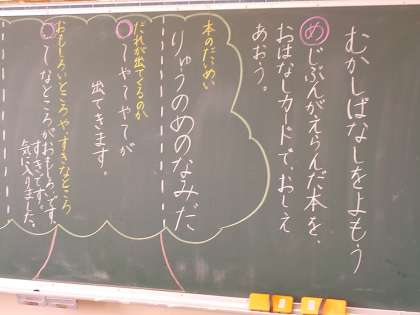 むかしばなしをよもう
めじぶんがえらんだ本を、
おはなしカードで、おしえ
あおう。
本のだいめい
りゅうのめのなみだ
だれが出てくるのか
〜や〜や〜が
出てきます。
おもしろいところや、すきなところ
〜なところがおもしろいです。
すきです。
気に入りました。